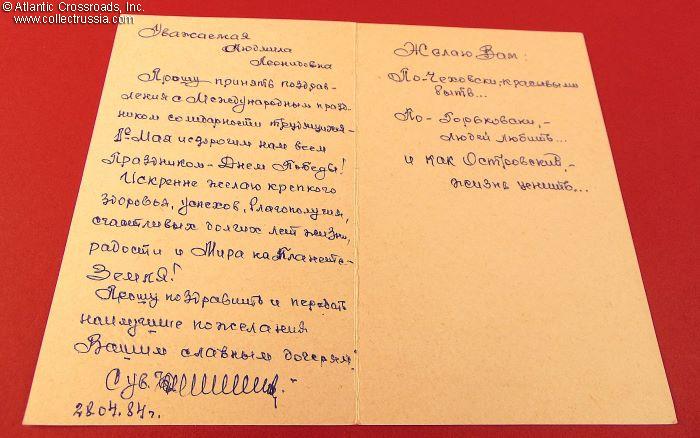 © Atlantic Crossroads, Inc.
www.collectrussia.com
Уважаемая
Людмила
Леонидовна
Прошу принять поздрав-
ления с Международным празд-
ником солидарности трудящихся-
1е Мая и с дорогим нам всем
Праздником - Днем Победы!
Искренне желаю крепкого
здоровья, успехов, благополучия,
счастливых долгих лет жизни,
радости и Мира на Планете-
Земля!
Прошу поздравить и передать
наилучшие пожелания
Вашим славным дочерям!
С ув.
28.04.84г.
Желаю Вам:
По-Чеховски,-красивыми
быть...
По-Горьковски,-
людей любить...
и как Островский,-
жизнь ценить...